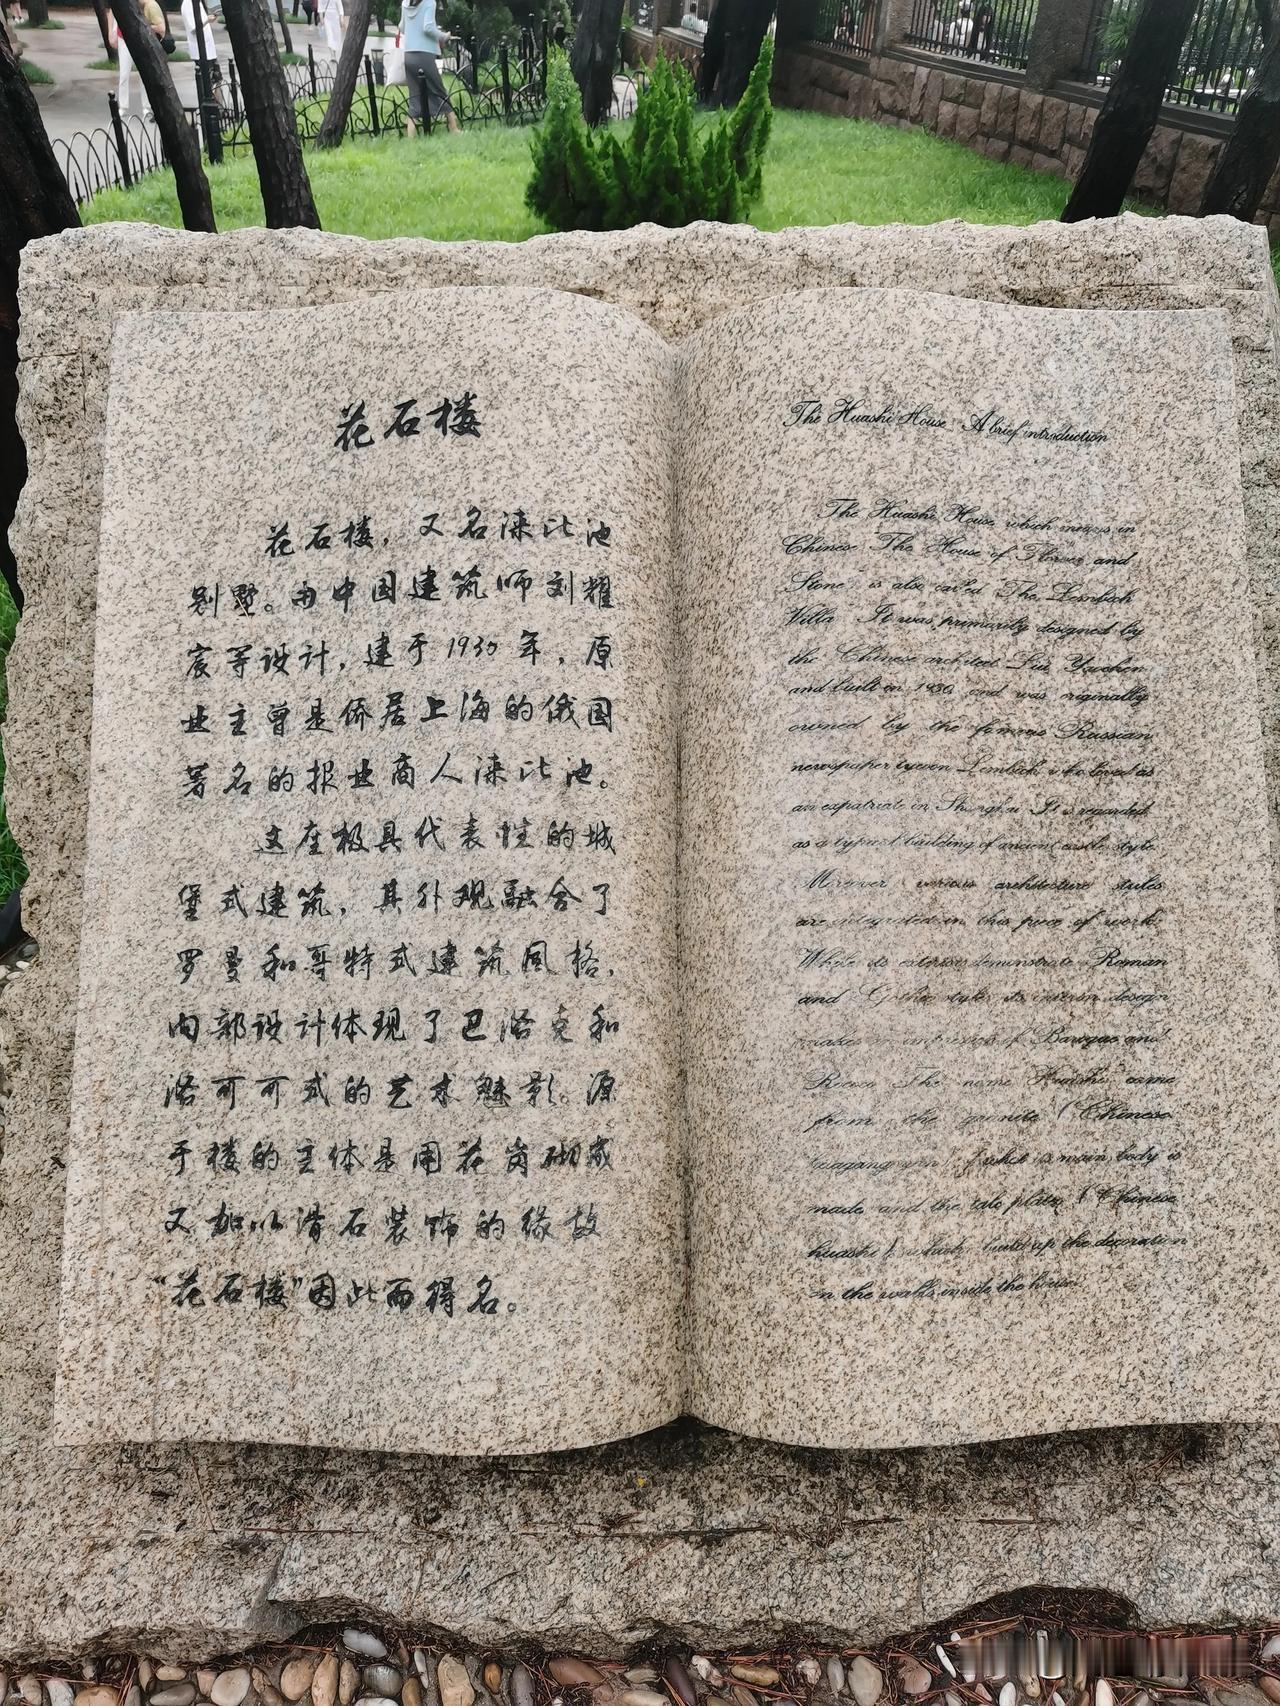 花石楼
花石楼，又名涞比池
别墅。由中国建筑师刘耀
宸等设计，建于1930年，原
业主曾是侨居上海的俄国
著名的报业商人涞比池。
这座极具代表性的城
堡式建筑，其外观融合了
罗曼和哥特式建筑风格，
内部设计体现了巴洛克和
洛可可式的艺术魅影。源
于楼的主体是用花岗砌成
又加以滑石装饰的缘故
“花石楼”因此而得名。
The Huashi House A brief introduction
The Huashi House, which means in
Chinese The House of Flower and
Stone, is also called The Lembich
Villa. It was primarily designed by
the Chinese architect Liu Yaochen
and built in 1930, and was originally
owned by the famous Russian
newspaper tycoon Lembich who lived as
an expatriate in Shanghai. It is regarded
as a typical building of ancient castle style.
Moreover various architecture styles
are integrated in this piece of work.
While its exterior demonstrate Roman
and Gothic style, its interior design
of Baroque and
Rococo. The name Huashi came
from the granite (Chinese
of what is main body is
made, and the talc plates (Chinese
huashi), which build up the decoration
on the walls inside the house.